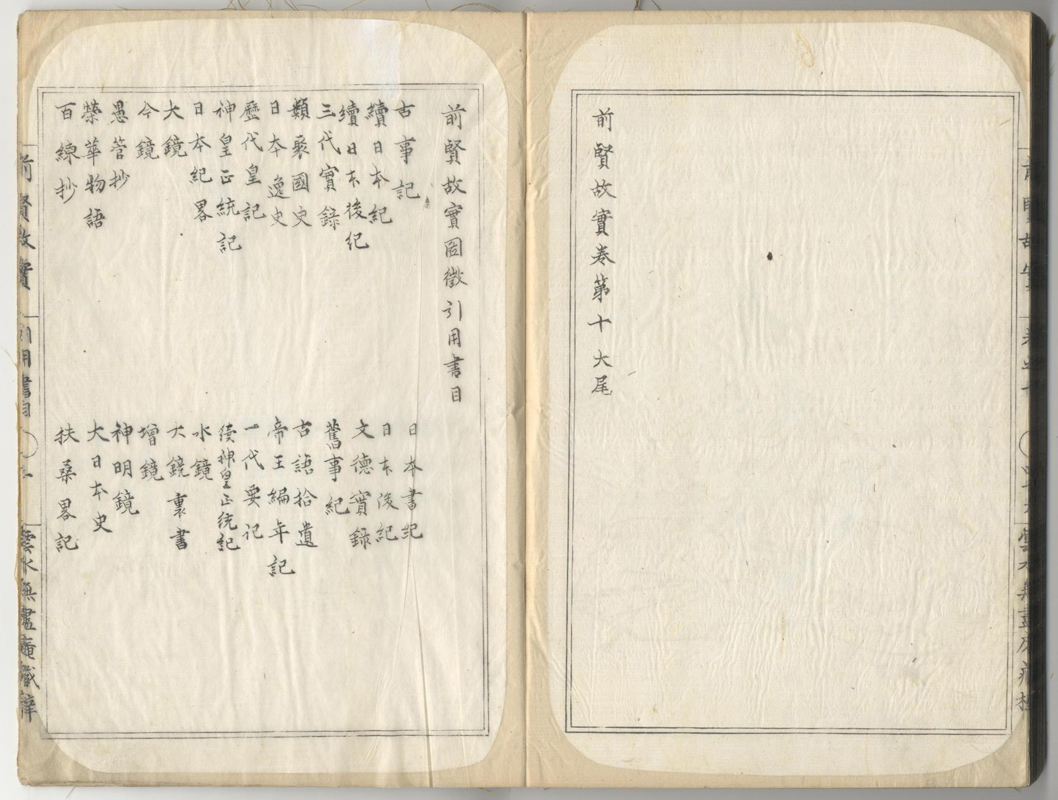 前賢故實卷第十大尾
前賢故實圖徵引用書目
古事記
日本書紀
續日本紀
日本後紀
續日本後紀
文德實錄
三代實錄
舊事紀
類聚國史
古語拾遺
日本逸史
帝王編年記
歷代皇記
一代要記
神皇正統記
續神皇正統記
日本紀畧
水鏡
大鏡
大鏡裏書
今鏡
增鏡
愚菅抄
神明鏡
榮華物語
大日本史
百練抄
扶桑畧記
前賢故實
引用書目
雲水無盡庵藏梓